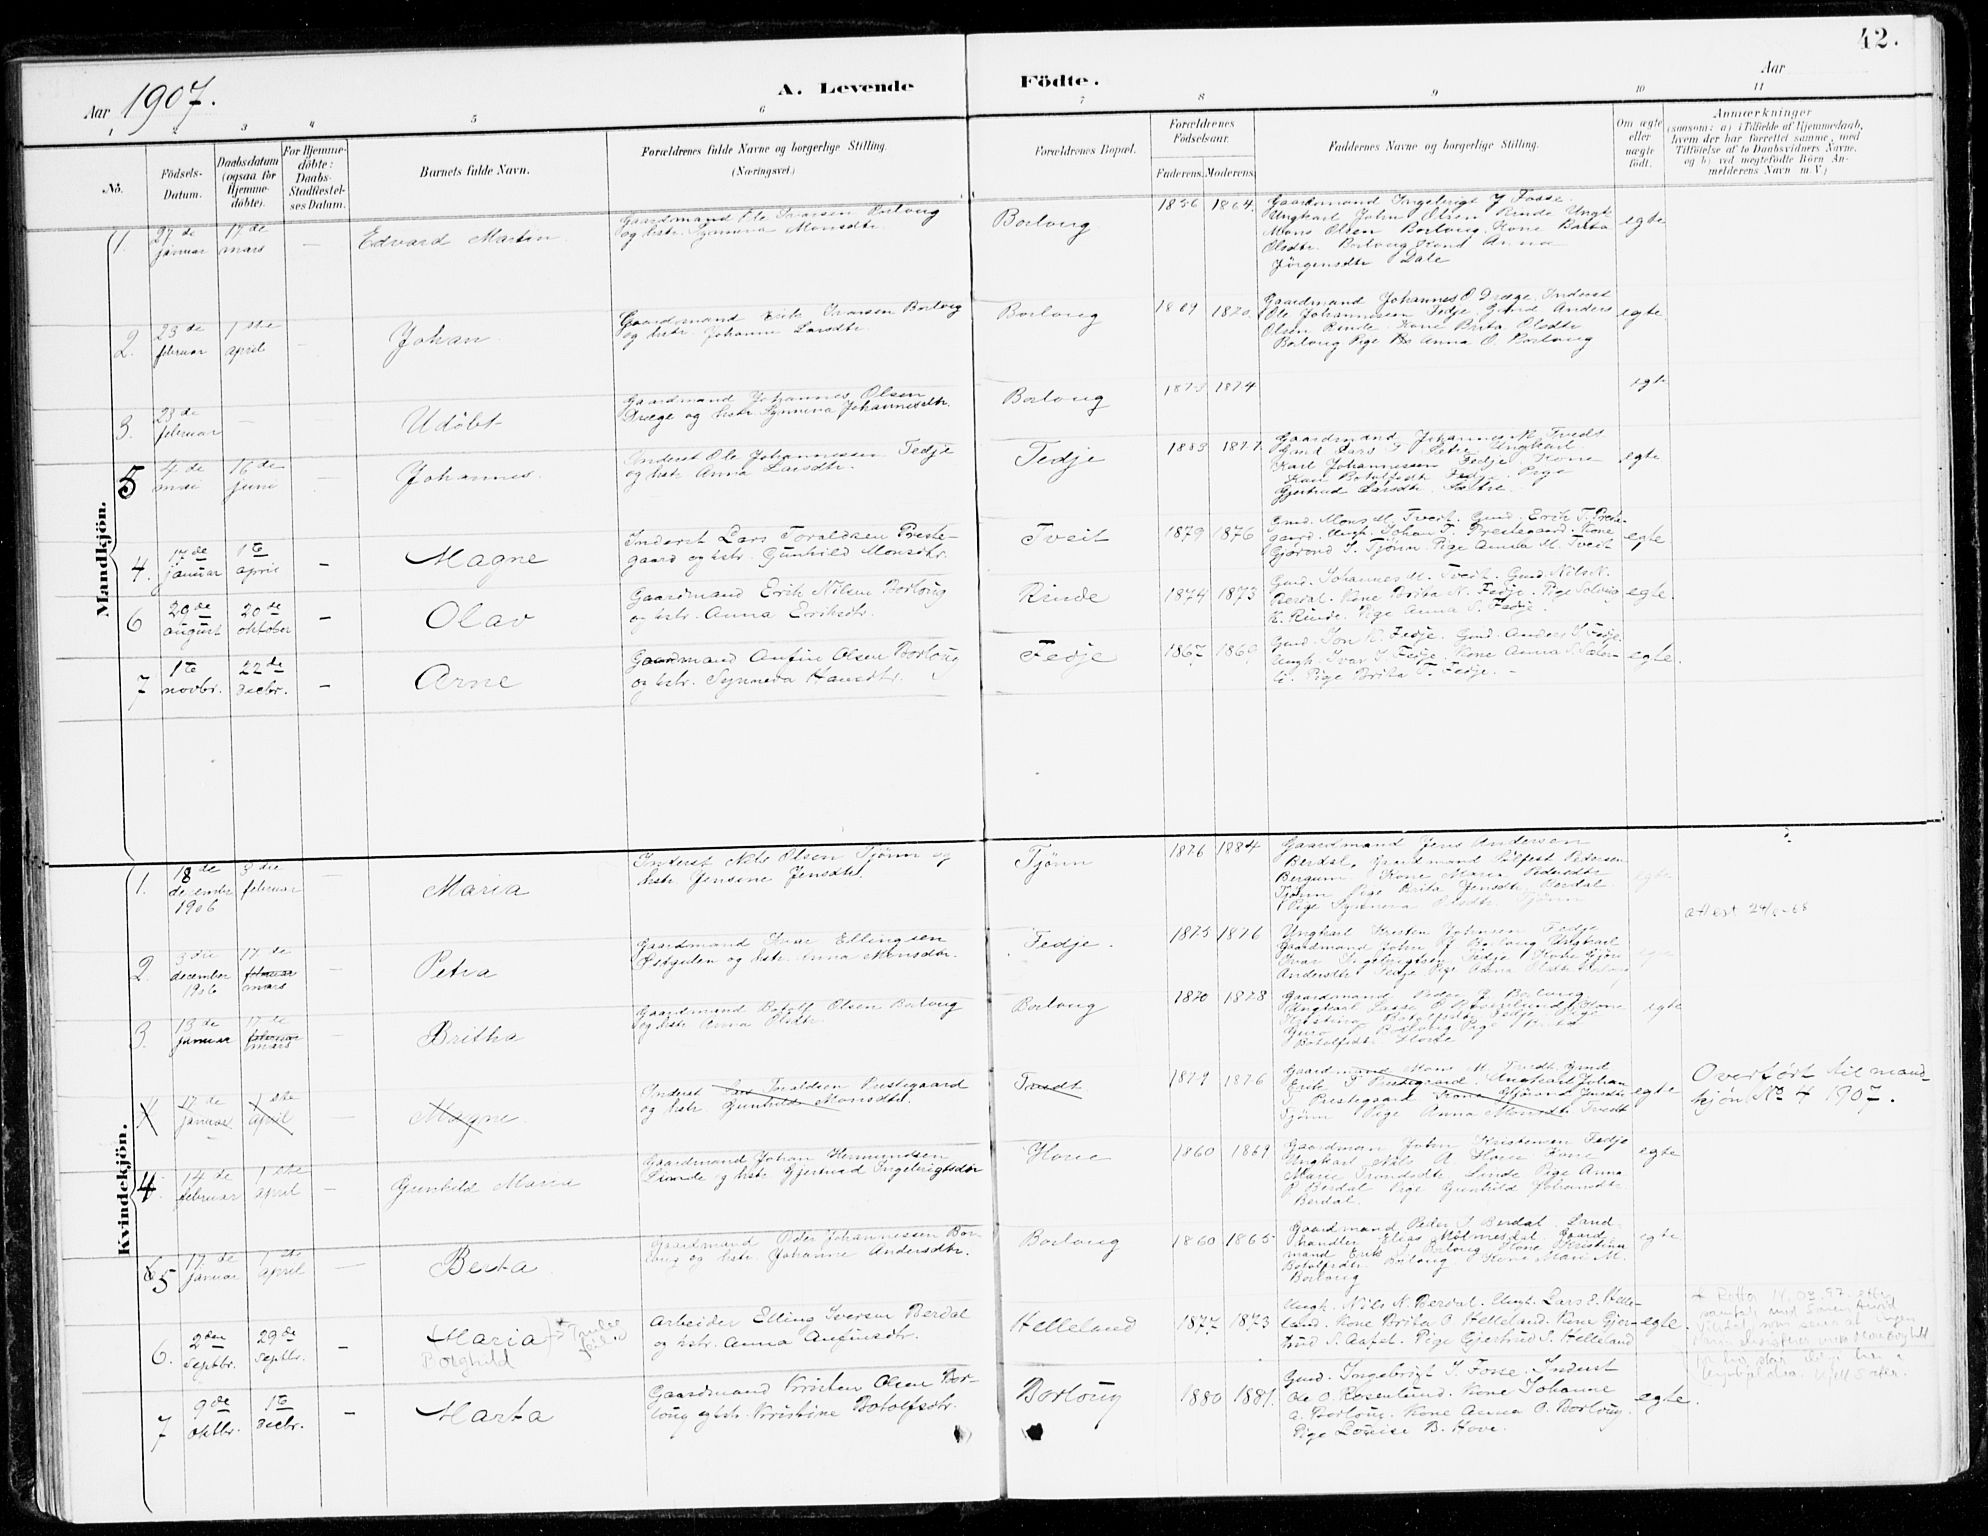 42.
Aar 1907.
A. Levende Födte.
Aar
1 2 3 4 5 6 7 8 9 10 11
No.
Födsels-Datum.
Daabsdatum (ogsaa for Hjemme-döbte).
For Hjemme-döbte: Daabs-Stadfæstel-ses Datum.
Barnets fulde Navn.
Forældrenes fulde Navne og borgerlige Stilling.
(Næringsvei.)
Forældrenes Bopæl.
Forældrenes Födselsaar.
Faderens. Moderens.
Faddernes Navne og borgerlige Stilling.
Om ægte eller uægte födt.
Anmærkninger
(saasom: a) i Tilfælde af Hjemmedaab,
hvem der har forrettet samme, med
Tilföielse af to Daabsvidners Navne,
og b) ved uegtefödte Börn An-
melderens Navn m. V.)
Mandkjön.
1. 27 de januar 17 de mars — Edvard Martin.
Gaardmand Ole Ivarsen Borlaug
og hstr. Synneva Monsdtr.
Borlaug 1856 1864.
Gaardmand Ingebrigt J Fosse.
Ungkarl John Olsen Rinde Ungk
Mons Olsen Borlaug. Kone Barta
Olsdtr. Borlaug Kone Anna
Jörgensdtr Dale
egte
2. 23 de februar 1 ste april — Johan.
Gaardmand Erik Ivarsen Borlaug
og hstr. Johanne Larsdtr.
Borlaug 1869 1870.
Gaardmand Johannes O Dræge. Inderst
Ole Johannesen Fedje Gmd Anders
Olsen Rinde. Kone Brita Olsdtr
Borlaug Pige Anna O. Borlaug
egte
3. 23 de februar — — Udöbt
Gaardmand Johannes Olsen
Dræge og hstr. Synneva Johannesdtr.
Borlaug 1873 1874
egte
5 4 de mai 16 de juni — Johannes.
Inderst Ole Johannessen Fedje
og hstr. Anna Larsdtr.
Fedje 1883 1877
Gaardmand Johannes M. Tvedt
Gmd Lars I Sætre Ungkarl
Karl Johannessen Fedje. Kone
Kari Botolfsdtr Fedje. Pige
Gjertrud Larsdtr. Sætre.
egte
4. 17 de januar 1 te april — Magne
Inderst Lars Toraldsen Preste-
gaard og hstr. Gunhild Monsdtr.
Tveit 1879 1876
Gmd. Mons M. Tveit. Gmd. Erik T. Preste-
gaard. Ungk. Johan T. Prestegaard. Kone
Gjörond J. Tjönn. Pige Anna M. Tveit
egte
6 20 de august 20 de oktober — Olav
Gaardmand Erik Nilsen Borlaug
og hstr. Anna Eriksdtr.
Rinde 1874 1873
Gmd. Johannes M. Tveit. Gmd. Nils N.
Berdal. Kone Brita N. Fedje. Pige Solveig
K. Rinde. Pige Anna S. Fedje.
egte.
7 1 te novbr. 22 de decbr. — Arne
Gaardmand Anfin Olsen Borlaug
og hstr. Synneva Hansdtr.
Fedje 1867 1869
Gmd. Jon K. Fedje. Gmd. Anders I. Fedje.
Ungk. Ivar I. Fedje. Kone Anna
Pige Brita T. Fedje. —
egte.
Kvindekjön.
1. 18 de december 1906 3 die februar — Maria
Inderst Nils Olsen Tjönn og
hstr. Jensine Jensdtr.
Tjönn 1876 1884
Gaardmand Jens Andersen
Berdal, Gaardmand Sölfest Pedersen
Bergum. Kone Maria Pedersdtr
Tjönn Pige Brita Jensdtr Berdal
Pige Synneva Olsdtr Tjönn
egte
2. 3 die december 1906 17 de februar mars — Petra
Gaardmand Ivar Ellingsen
Östgulen og hstr. Anna Monsdtr.
Fedje. 1875 1876
Ungkarl Kristen Johnsen Fedje
Gaardmand John P Borlaug Ungkarl
Ivar Ingebrigtsen Fedje Kone Gjöri
Andersdtr Fedje Pige Anna Olsdtr Borlaug
egte
attest
3. 13 de januar 17 de februar mars — Britha
Gaardmand Botolf Olsen Borlaug
og hstr. Anna Olsdtr.
Borlaug 1870 1878
Gaardmand Peder J Borlaug
Ungkarl Lasse O Rosenlund Kone
Kristina Botolfsdtr Fedje Pige
Guro P Borlaug Pige Brita
Botolfsdtr Hove
egte
4 17 de januar 1 ste april Magne.
Inderst Lars Toraldsen Prestegaard
og hstr. Gunhilde Monsdtr.
Tvedt 1879 1876
Gaardmand Mons M. Tvedt Gmd
Erik T Prestegaard. Ungkarl Johan
T. Prestegaard Kone Gjörond Jensdtr
Tjönn Pige Anna Monsdtr Tvedt
egte
Overfört til mand-
kjön No 4 1907.
4. 14 de februar 1 ste april — Gunhild Maria
Gaardmand Johan Hermundsen
Linde og hstr Gjertrud Ingebrigtsdtr
Hove 1860 1869
Gaardman John Kristensen Fedje
Ungkarl Nils A Hove Kone
Marie Trondsdtr Linde Pige Anna
P Berdal Pige Gunhild Johansdtr
Berdal.
egte
5 17 de januar 1 ste april — Berta
Gaardmand Peder Johannessen Bor-
laug og hstr. Johanne Andersdtr.
Borlaug 1860 1865
Gaardmand Peder S. Berdal. Land-
handler Elias Holmesdal. Gaard
mand Erik I Borlaug Kone Kristina
Botolfsdtr Borlaug. Kone Mari M.
Borlaug
egte
6. 2 den septbr. 29 de septbr. — (Maria)
Borghild
Arbeider Elling Iversen Berdal
og hstr. Anna Anfinsdtr.
Helleland 1877 1873
Ungk. Nils N. Berdal. Ungk. Lars E. Helle-
land. Kone Brita O Helleland. Kone Gjer-
trud S. Aafet. Pige Gjertrud S. Helleland
egte.
7 9 de oktbr. 1 te decbr. — Marta
Gaardmand Kristen Olsen Bor-
laug og hstr. Kristine Botolfsdtr.
Borlaug 1880 1881.
Gmd. Ingebrigt J. Fosse. Inderst
Ole O. Rosenlund. Kone Johanne
A. Borlaug. Kone Anna O. Borlaug.
Pige Louise B. Hove.
egte.